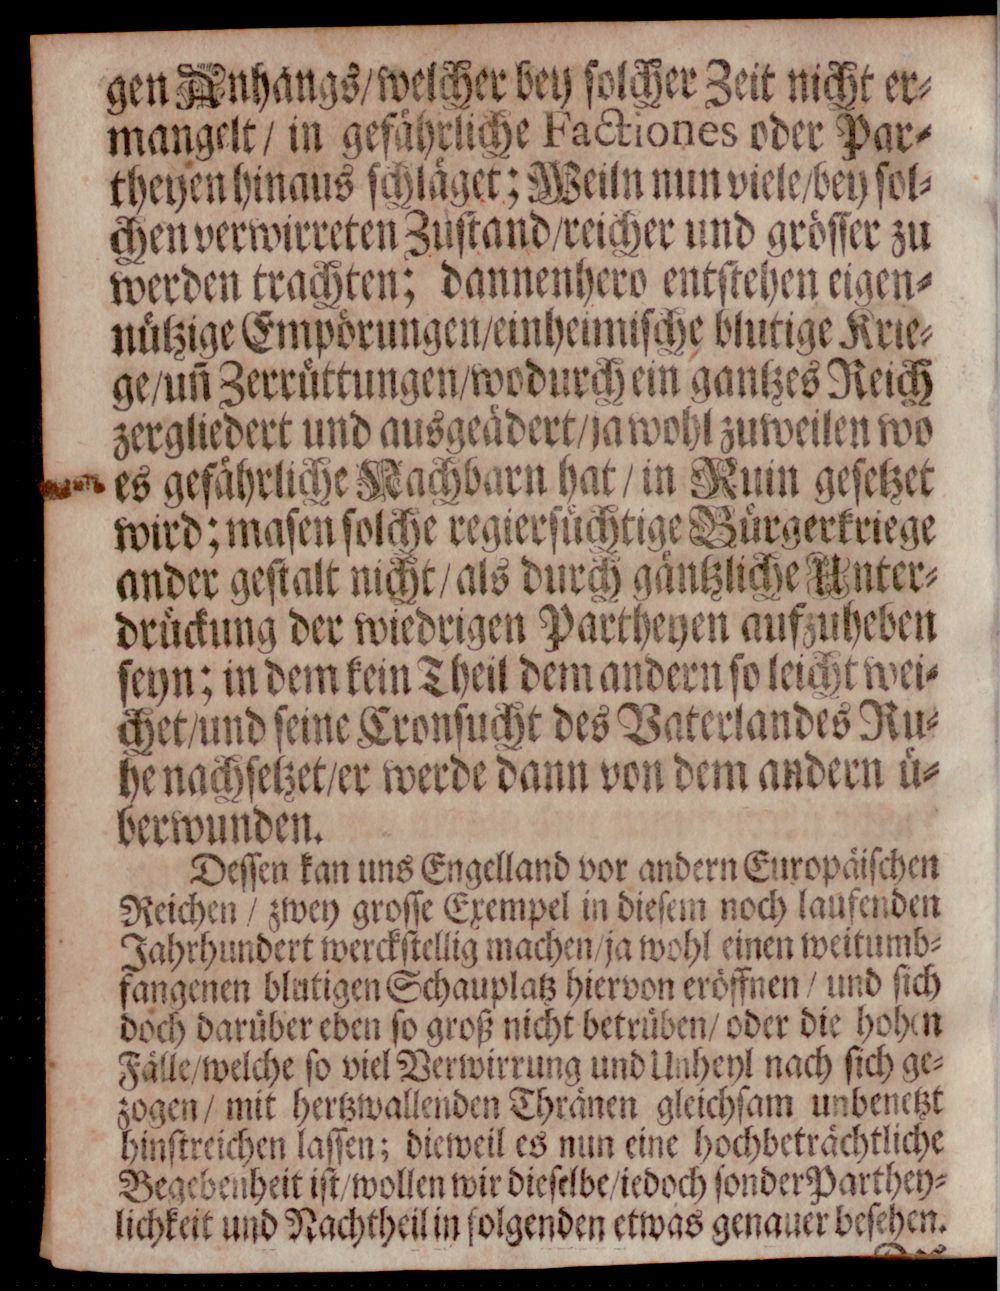 gen Anhangs/welcher bey solcher Zeit nicht er-
mangelt/ in gefährliche Factiones oder Par-
theyen hinaus schläget; Weiln nun viele/bey sol-
chen verwirreten Zustand/reicher und grösser zu
werden trachten; dannenhero entstehen eigen-
nützige Empörungen/einheimische blutige Krie-
ge/uñ Zerrüttungen/wodurch ein gantzes Reich
zergliedert und ausgeädert/ja wohl zuweilen wo
es gefährliche Nachbarn hat/in Ruin gesetzet
wird; masen solche regiersüchtige Bürgerkriege
ander gestalt nicht/als durch gäntzliche Unter-
drückung der wiedrigen Partheyen aufzuheben
seyn; in dem kein Theil dem andern so leicht wei-
chet/und seine Cronsucht des Vaterlandes Ru-
he nachsetzet/er werde dann von dem andern ü-
berwunden.
Dessen kan uns Engelland vor andern Europäischen
Reichen / zwey grosse Exempel in diesem noch laufenden
Jahrhundert werckstellig machen/ja wohl einen weitumb-
fangenen blutigen Schauplatz hiervon eröffnen / und sich
doch darüber eben so groß nicht betrüben/ oder die hohen
Fälle/welche so viel Verwirrung und Unheyl nach sich ge-
zogen/ mit hertzwallenden Thränen gleichsam unbenetzt
hinstreichen lassen; dieweil es nun eine hochbeträchtliche
Begebenheit ist/wollen wir dieselbe/iedoch sonder Parthey-
lichkeit und Nachtheil in folgenden etwas genauer besehen.